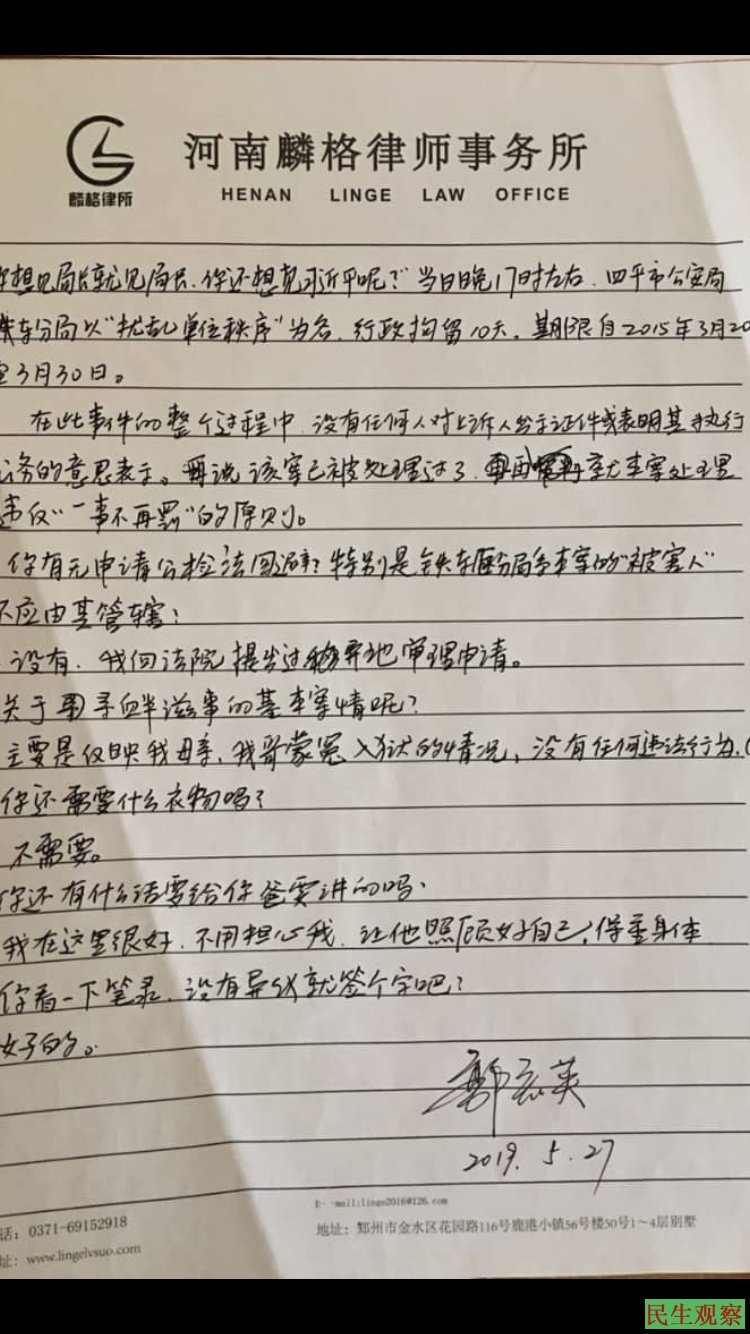 麟格律所
河南麟格律师事务所
HENAN LINGE LAW OFFICE
你想见局长就见局长、你还想见习近平呢?”当日晚17时左右、四平市公安局
铁东分局以“扰乱单位秩序”为名、行政拘留10天。期限自2015年3月20
至3月30日。
在此事件的整个过程中、没有任何人对上诉人出示证件或表明其执行
务的意思表示。再说该案已被处理过了、再 就本案处理
违反“一事不再罚”的原则。
你有无申请公检法回避?特别是铁东区分局系本案的“被害人”
不应由其管辖?
没有、我向法院提出过异地审理申请。
关于寻衅滋事的基本案情呢?
主要是反映我母亲、我哥蒙冤入狱的情况,没有任何违法行为.(
你还需要什么衣物吗?
不需要。
你还有什么话要给你爸要讲的吗.
我在这里很好.不用担心我.让他照顾好自己,保重身体
你看一下笔录、没有异议就签个字吧?
好的。
郭宏英
2019.5.27
E--mail:linge2016@126.com
话:0371-69152918
地址:郑州市金水区花园路116号鹿港小镇56号楼50号1~4层别墅
址:www.lingelvsuo.com
民生观察